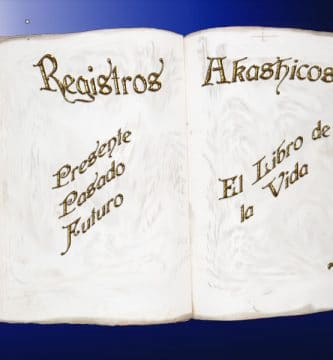 Registros Akashicos
Presente
Pasado
Futuro
El Libro de
la Vida